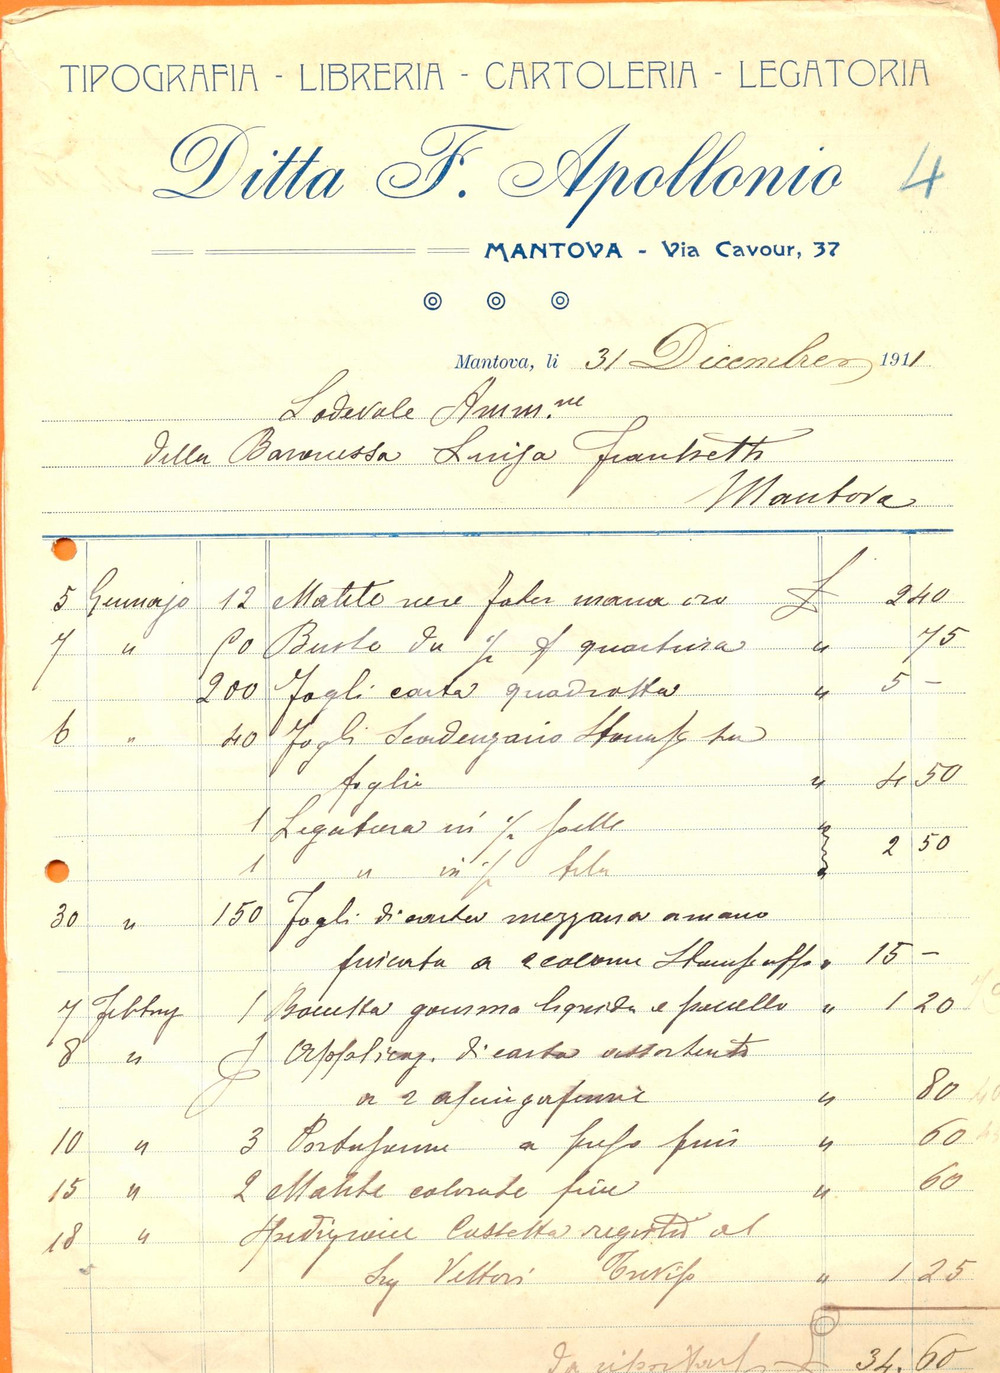 TIPOGRAFIA - LIBRERIA - CARTOLERIA - LEGATORIA
Ditta F. Apollonio
4
MANTOVA - Via Cavour, 37
Mantova, li 31 Dicembre 1911
Lodevole Amm.ne
della Baronessa Luigia Franchetti
Mantova
5 Gennajo 12 Matite nere Faber marca oro £ 2 40
7 " Buste da " 75
200 Fogli carta quadrotta " 5 -
6 " 40 Fogli Scadenzario Stampa
foglio " 4 50
1 Legatura in ½ pelle "
1 " in ½ tela " 2 50
30 " 150 Fogli di carta mezzana a mano
a 2 colonne " 15 -
7 Febbraj 1 Boccetta gomma liquida e pennello " 1 20
8 " 1 Applicaz. di carta assorbente
a 2 " 80
10 " 3 Portapenne a fini " 60
15 " 2 Matite colorate fine " 60
18 " Spedizione Cassetta registri al
Sig Vettori Treviso " 1 25
Da riportarsi £ 34.60